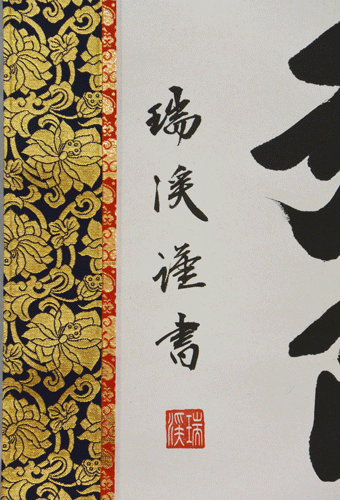 瑞渓謹書
瑞渓